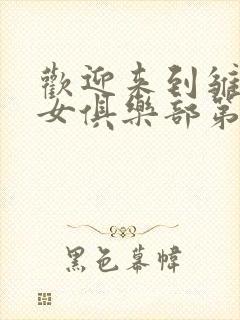 歡迎来到雏
女俱樂部第
黑色幕幃